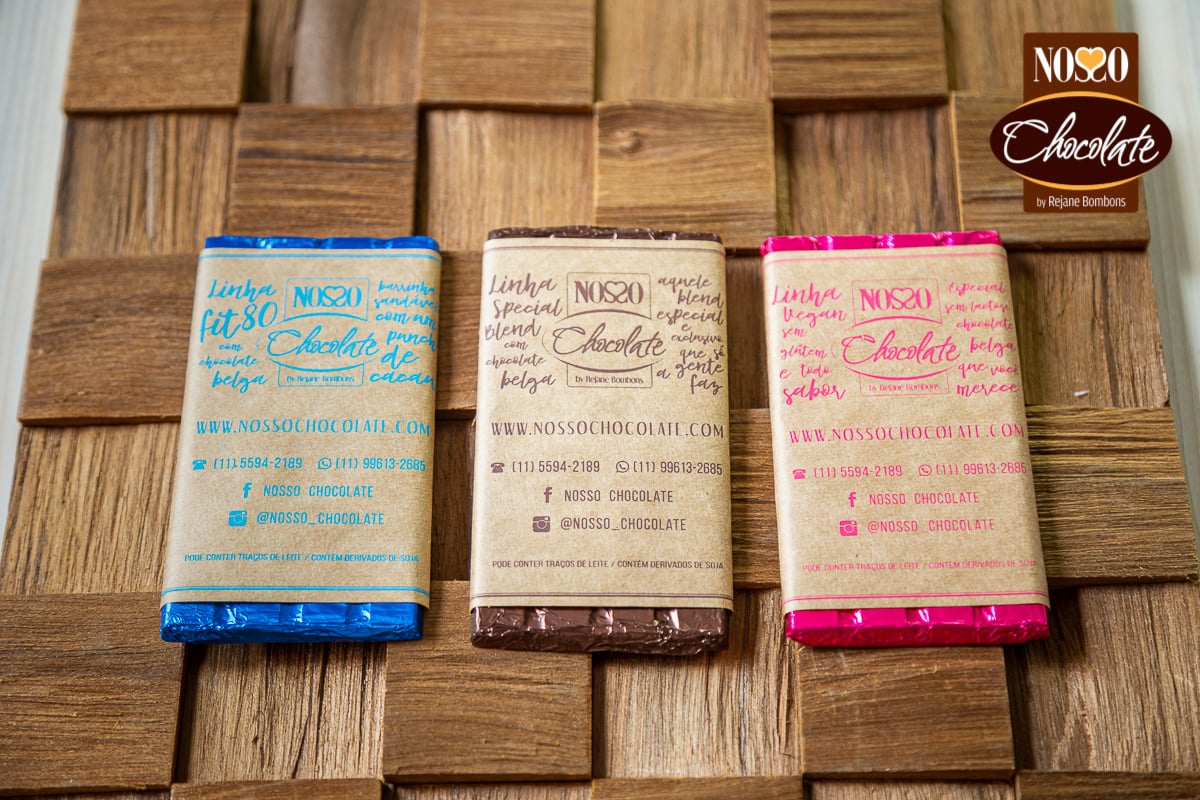 NOSSO
Chocolate
by Rejane Bombons
Linha
fit80
com
chocolate
belga
NOSSO
Chocolate
by Rejane Bombons
barrinha
saudável
com um
punch
de
cacau
WWW.NOSSOCHOCOLATE.COM
(11) 5594-2189 (11) 99613-2685
NOSSO CHOCOLATE
@NOSSO_CHOCOLATE
PODE CONTER TRAÇOS DE LEITE / CONTÉM DERIVADOS DE SOJA
Linha
Special
Blend
com
chocolate
belga
NOSSO
Chocolate
by Rejane Bombons
aquele
blend
especial
e
exclusivo
que só
a gente
faz
WWW.NOSSOCHOCOLATE.COM
(11) 5594-2189 (11) 99613-2685
NOSSO CHOCOLATE
@NOSSO_CHOCOLATE
PODE CONTER TRAÇOS DE LEITE / CONTÉM DERIVADOS DE SOJA
Linha
Vegan
sem
glútem
e todo
sabor
NOSSO
Chocolate
by Rejane Bombons
Especial
sem lactose
chocolate
belga
que você
merece
WWW.NOSSOCHOCOLATE.COM
(11) 5594-2189 (11) 99613-2685
NOSSO CHOCOLATE
@NOSSO_CHOCOLATE
PODE CONTER TRAÇOS DE LEITE / CONTÉM DERIVADOS DE SOJA